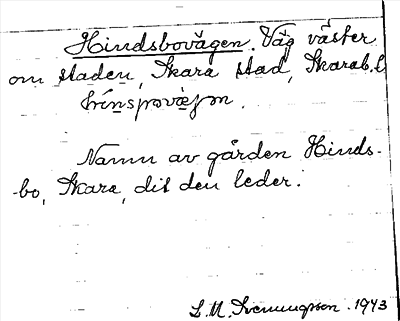 Hindsbovägen. Väg väster
om staden, Skara stad, Skarab.l.
Namn av gården Hinds-
-bo, Skara, dit den leder.
S. M. Svenungsson. 1943